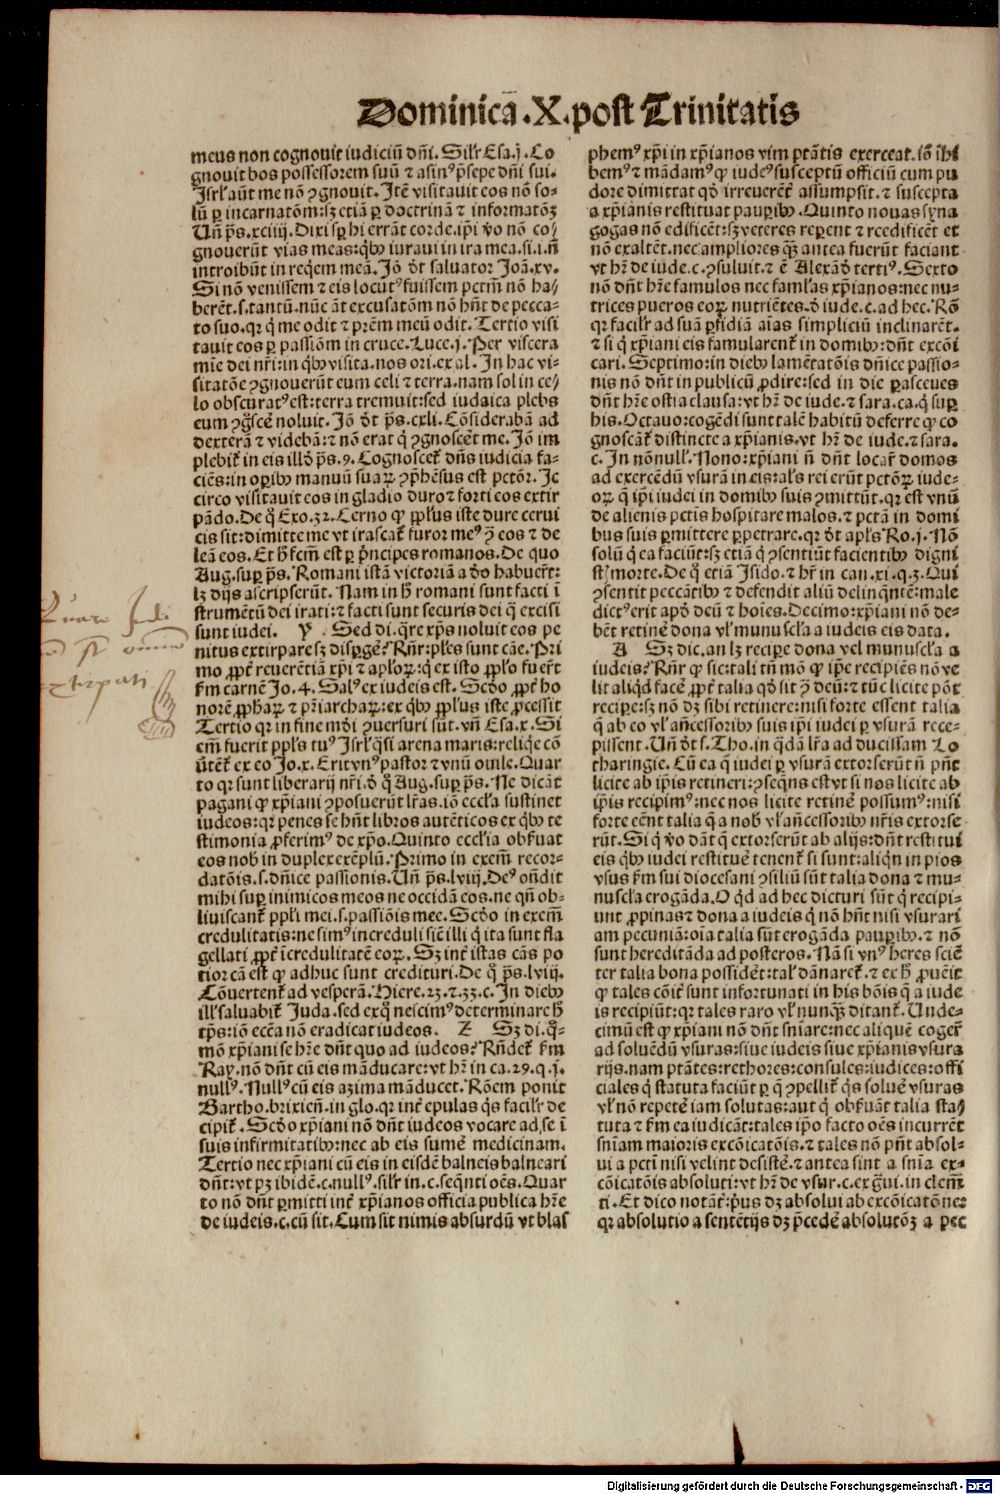 Dominica .X. post Trinitatis
meus non cognouit iudiciū dn̄i. Silr̄ Esa.j. Co
gnouit bos possessorem suū ⁊ asinꝰ p̄sepe dn̄i sui.
Isrl' aūt me nō ꝯgnouit. Itē visitauit eos nō so-
lū ꝑ incarnatōm: sꝫ etiā ꝑ doctrinā ⁊ informatōꝫ
Un̄ ps̄. xciiij. Dixi sꝑ hi errāt corde. ip̄i v̊o nō co/
gnouerūt vias meas: qͥbꝰ iuraui in ira mea. si. i. n̄
introibūt in reqͥem meā. Iō d̄t saluator Joā. xv.
Si nō venissem ⁊ eis locutꝰ fuissem pctm̄ nō ha/
berēt. s. tantū. nūc āt excusatōm nō hn̄t de pecca-
to suo. qꝛ q̇ me odit ⁊ pr̄em meū odit. Tertio visi
tauit eos ꝑ passiōm in cruce. Luce.j. Per viscera
mīe dei nr̄i: in qͥbꝰ visita. nos ori. ex al. In hac vi-
sitatōe ꝯgnouerūt eum celi ⁊ terra. nam sol in ce/
lo obscuratꝰ est: terra tremuit: sed iudaica plebs
eum ꝯgͦscē noluit. Iō d̄t ps̄. cxli. Cōsiderabā ad
dexterā ⁊ videbā: ⁊ nō erat q̇ ꝯgnoscēt me. Iō im
plebit̄ in eis illd̓ ps̄. 9. Cognoscet̄ dn̄s iudicia fa-
ciēs: in oꝑibꝰ manuū suaꝝ ꝯp̄hēsus est pctōr. Ic
circo visitauit eos in gladio duro ⁊ forti eos extir
pādo. De qͦ Exo. 32. Cerno ꝙ ppl'us iste dure cerui
cis sit: dimitte me vt irascat̄ furor meꝰ ꝯ̄ eos ⁊ de
leā eos. Et h̊ fcm̄ est ꝑ p̄ncipes romanos. De quo
Aug. suꝑ ps̄. Romani istā victoriā a dō habuer̄t:
lꝫ dijs ascripserūt. Nam in h̊ romani sunt facti ī
strumētū dei irati: ⁊ facti sunt securis dei q̇ excisi
sunt iudei. Y Sed di. qͣre xp̄s noluit eos pe
nitus extirpare sꝫ disꝑgē? Rn̄r: pl̄es sunt cāe. Pri
mo ꝓpt̄ reuerētiā xp̄i ⁊ apl'oꝝ: q̇ ex isto ppl'o fuer̄t
fm̄ carnē Jo. 4. Salꝰ ex iudeis est. Scd̓o ꝓpt̄ ho
norē ꝓphaꝝ ⁊ pr̄iarchaꝝ: ex qͥbꝰ ppl'us iste ꝓcessit
Tertio qꝛ in fine mūdi ꝯuersuri sūt. vn̄ Esa. x. Si
em̄ fuerit ppl's tuꝰ Isrl' qͣsi arena maris: reliqͥe cō
u̓tēt̄ ex eo Jo. x. Erit vnꝰ pastor ⁊ vnū ouile. Quar
to qꝛ sunt liberarij nr̄i. d̓ qͦ Aug. suꝑ ps̄. Ne dicāt
pagani ꝙ xp̄iani ꝯposuerūt lr̄as. iō eccl'ia sustinet
iudeos: qꝛ penes se hn̄t libros autēticos ex qͥbꝰ te
stimonia ꝓferimꝰ de xp̄o. Quinto eccl'ia obẜuat
eos nob̄ in duplex exēplū. Primo in exem̄ recor-
datōis. s. dn̄ice passionis. Un̄ ps̄. lviij. Deꝰ on̄dit
mihi suꝑ inimicos meos ne occidā eos. ne qn̄ ob-
liuiscant̄ ppl'i mei. s. passiōis mee. Scd̓o in exem̄
credulitatis: ne simꝰ increduli sic̄ illi q̇ ita sunt fla
gellati ꝓpt̄ īcredulitatē eoꝝ. Sꝫ int̄ istas cās po
tior cā est ꝙ adhuc sunt credituri. De qͦ ps̄. lviij.
Cōuertent̄ ad vesperā. Hiere. 23. ⁊ .33. c. In diebꝰ
ill' saluabit̄ Juda. sed ex qͦ nescimꝰ determinare h̊
tp̄s: iō ecc̄a nō eradicat iudeos. Z Sꝫ di. qͣ-
mō xp̄iani se hr̄e dn̄t quo ad iudeos? Rn̄det̄ fm̄
Ray. nō dn̄t cū eis māducare: vt hr̄ in ca. 29. q. j.
nullꝰ. Nullꝰ cū eis azima māducet. Rōem ponit
Bartho. brixien̄. in glo. qꝛ int̄ epulas qͥs facilr̄ de
cipit̄. Scd̓o xp̄iani nō dn̄t iudeos vocare ad se ī
suis infirmitatibꝰ: nec ab eis sumē medicinam.
Tertio nec xp̄iani cū eis in eisdē balneis balneari
dn̄t: vt pꝫ ibidē. c. nullꝰ. silr̄ in. c. seqn̄ti oēs. Quar
to nō dn̄t ꝑmitti int̄ xp̄ianos officia publica hr̄e
de iudeis. c. cū sit. Cum sit nimis absurdū vt blas
phemꝰ xp̄i in xp̄ianos vim ptātis exerceat. iō īhi
bemꝰ ⁊ mādamꝰ ꝙ iudeꝰ susceptū officiū cum pu
dore dimittat qd̓ irreuerēt̄ assumpsit. ⁊ suscepta
a xp̄ianis restituat pauꝑibꝰ. Quinto nouas syna
gogas nō edificēt: sꝫ veteres reꝑent ⁊ reedificēt et
nō exaltēt. nec ampliores qͣꝫ antea fuerūt faciant
vt hr̄ de iude. c. ꝯsuluit. ⁊ ē Alexād̓ tertiꝰ. Sexto
nō dn̄t hr̄e famulos nec faml'as xp̄ianos: nec nu-
trices pueros eoꝝ nutriētes. d̓ iude. c. ad hec. Rō
qꝛ facilr̄ ad suā ꝑfidiā aīas simpliciū inclinarēt.
⁊ si q̇ xp̄iani eis famularent̄ in domibꝰ: dn̄t excōi
cari. Septimo: in diebꝰ lamētatōis dn̄ice passio-
nis nō dn̄t in publicū ꝓdire: sed in die parasceues
dn̄t hr̄e ostia clausa: vt hr̄ de iude. ⁊ sara. ca. q̇ suꝑ
his. Octauo: cogēdi sunt talē habitū deferre ꝙ co
gnoscāt̄ distincte a xp̄ianis. vt hr̄ de iude. ⁊ sara.
c. In nōnull'. Nono: xp̄iani n̄ dn̄t locar̄ domos
ad exercēdū vsurā in eis: al's rei erūt pctōꝝ iude-
oꝝ q̄ ip̄i iudei in domibꝰ suis ꝯmittūt. qꝛ est vnū
de alienis pctīs hospitare malos. ⁊ pctā in domi
bus suis ꝑmittere ꝑpetrare. qꝛ d̄t apl's Ro. j. Nō
solū q̇ ea faciūt: sꝫ etiā q̇ ꝯsentiūt facientibꝰ digni
st̄ morte. De qͦ etiā Isido. ⁊ hr̄ in can. xi. q. 3. Qui
ꝯsentit peccātibꝰ ⁊ defendit aliū delinqn̄tē: male
dictꝰ erit apd̓ deū ⁊ hoīes. Decimo: xp̄iani nō de-
bēt retinē dona vl' munuscl'a a iudeis eis data.
A Sꝫ dic. an lꝫ recipe dona vel munuscl'a a
iudeis? Rn̄r ꝙ sic: tali tn̄ mō ꝙ ip̄e recipiēs nō ve
lit aliqd̓ facē ꝓpt̄ talia qd̓ sit ꝯ̄ deū: ⁊ tūc licite pōt
reciꝑe: sꝫ nō dꝫ sibi retinere: nisi forte essent talia
q̄ ab eo vl' an̄cessoribꝰ suis ip̄i iudei ꝑ vsurā rece-
pissent. Un̄ d̄t s. Tho. in qͣdā lr̄a ad ducissam Lo
tharingie. Cū ea q̄ iudei ꝑ vsurā extorserūt n̄ pn̄t
licite ab ip̄is retineri: ꝯseqn̄s est vt si nos licite ab
ip̄is recipimꝰ: nec nos licite retinē possumꝰ: nisi
forte eēnt talia q̄ a nob̄ vl' an̄cessoribꝰ nr̄is extorse
rūt. Si q̄ v̊o dāt q̄ extorserūt ab alijs: dn̄t restitui
eis qͥbꝰ iudei restituē tenent̄ si sunt: aliqn̄ in pios
vsus fm̄ sui diocesani ꝯsiliū sūt talia dona ⁊ mu-
nuscl'a erogāda. O qd̓ ad hec dicturi sūt q̇ recipi-
unt ꝓpinas ⁊ dona a iudeis q̇ nō hn̄t nisi vsurari
am pecuniā: oīa talia sūt erogāda pauꝑibꝰ. ⁊ nō
sunt hereditāda ad posteros. Nā si vnꝰ heres sciē
ter talia bona possidēt: tal' dānaret̄. ⁊ ex h̊ ꝓuēit
ꝙ tales cōit̄ sunt infortunati in his bōis q̄ a iude
is recipiūt: qꝛ tales raro vl' nunqͣꝫ ditant̄. Unde-
cimū est ꝙ xp̄iani nō dn̄t sn̄iare: nec aliquē coger̄
ad soluēdū vsuras: siue iudeis siue xp̄ianis vsura
rijs. nam ptātes: rethores: consules: iudices: offi
ciales q̇ statuta faciūt ꝑ q̄ ꝯpellit̄ qͥs soluē vsuras
vl' nō repetē iam solutas: aut q̇ obẜuāt talia sta/
tuta ⁊ fm̄ ea iudicāt: tales ip̄o facto oēs incurrēt
sn̄iam maioris excōicatōis. ⁊ tales nō pn̄t absol-
ui a pctī nisi velint desistē. ⁊ antea sint a sn̄ia ex-
cōicatōis absoluti: vt hr̄ de vsur. c. ex gͣui. in clem̄
ti. Et dico notāt̄: pͥus dꝫ absolui ab excōicatōne:
qꝛ absolutio a sentētijs dꝫ p̄cedē absolutōꝫ a pec
Quare Iudei
nō st̄ omnino
extirpati
Digitalisierung gefördert durch die Deutsche Forschungsgemeinschaft - DFG